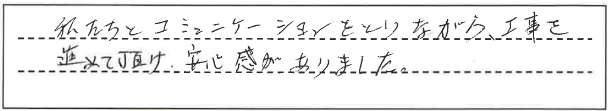 私たちとコミュニケーションをとりながら、工事を
進めて頂け、安心感がありました。